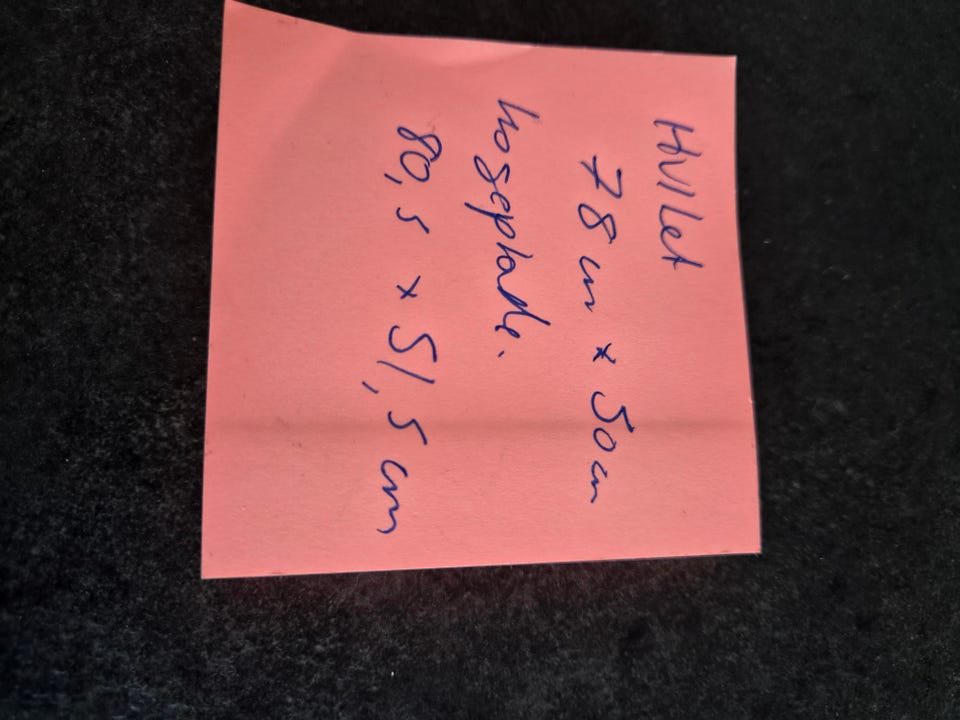 Hullet
78 cm x 50 cm
kogeplade.
80,5 x 51,5 cm